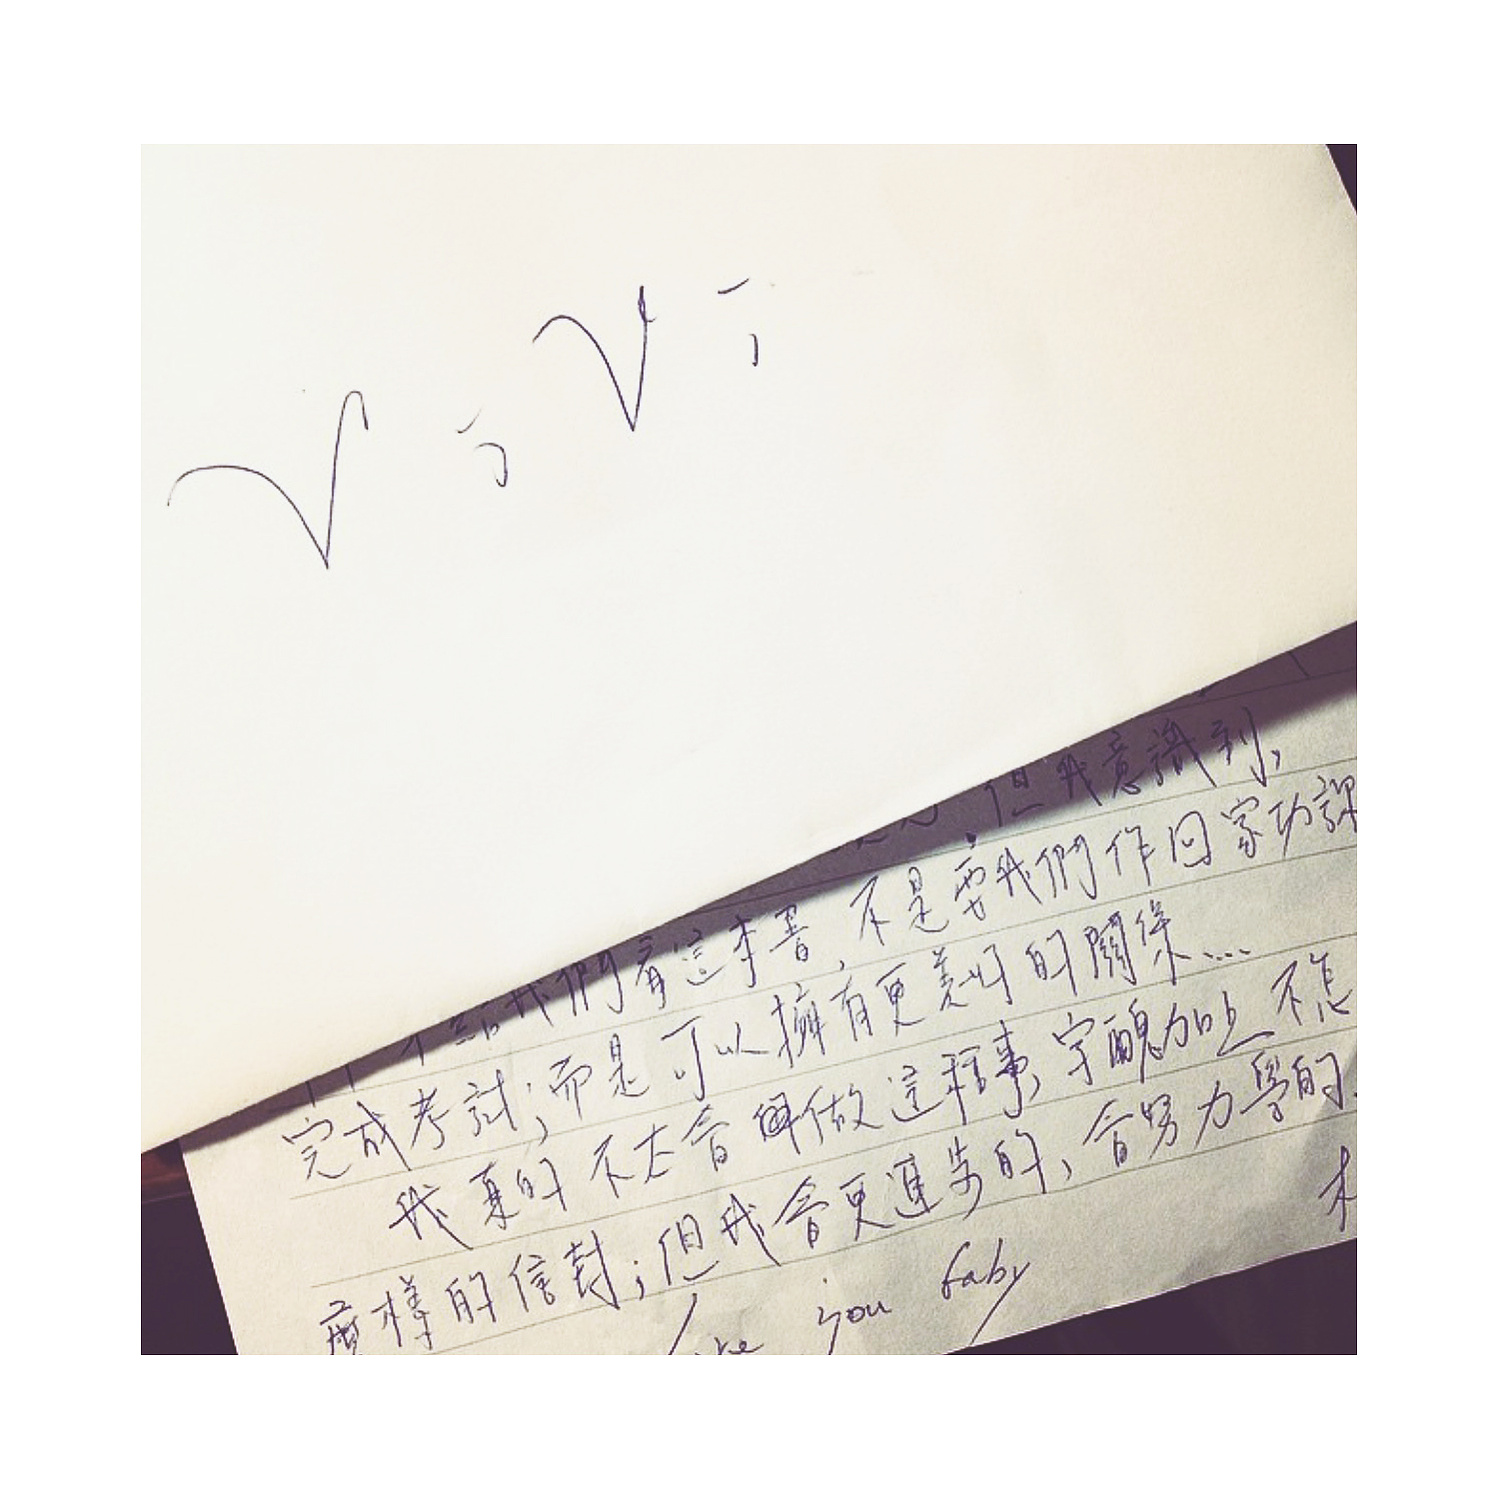 ViVi
但我意識到,
給我們看這本書,不是要我們作回家功課
完成考試;而是可以擁有更美好的關係...
我真的不太會做這種事,字醜加上不怎
麼樣的信封;但我會更進步的,會努力學的.
Love you baby